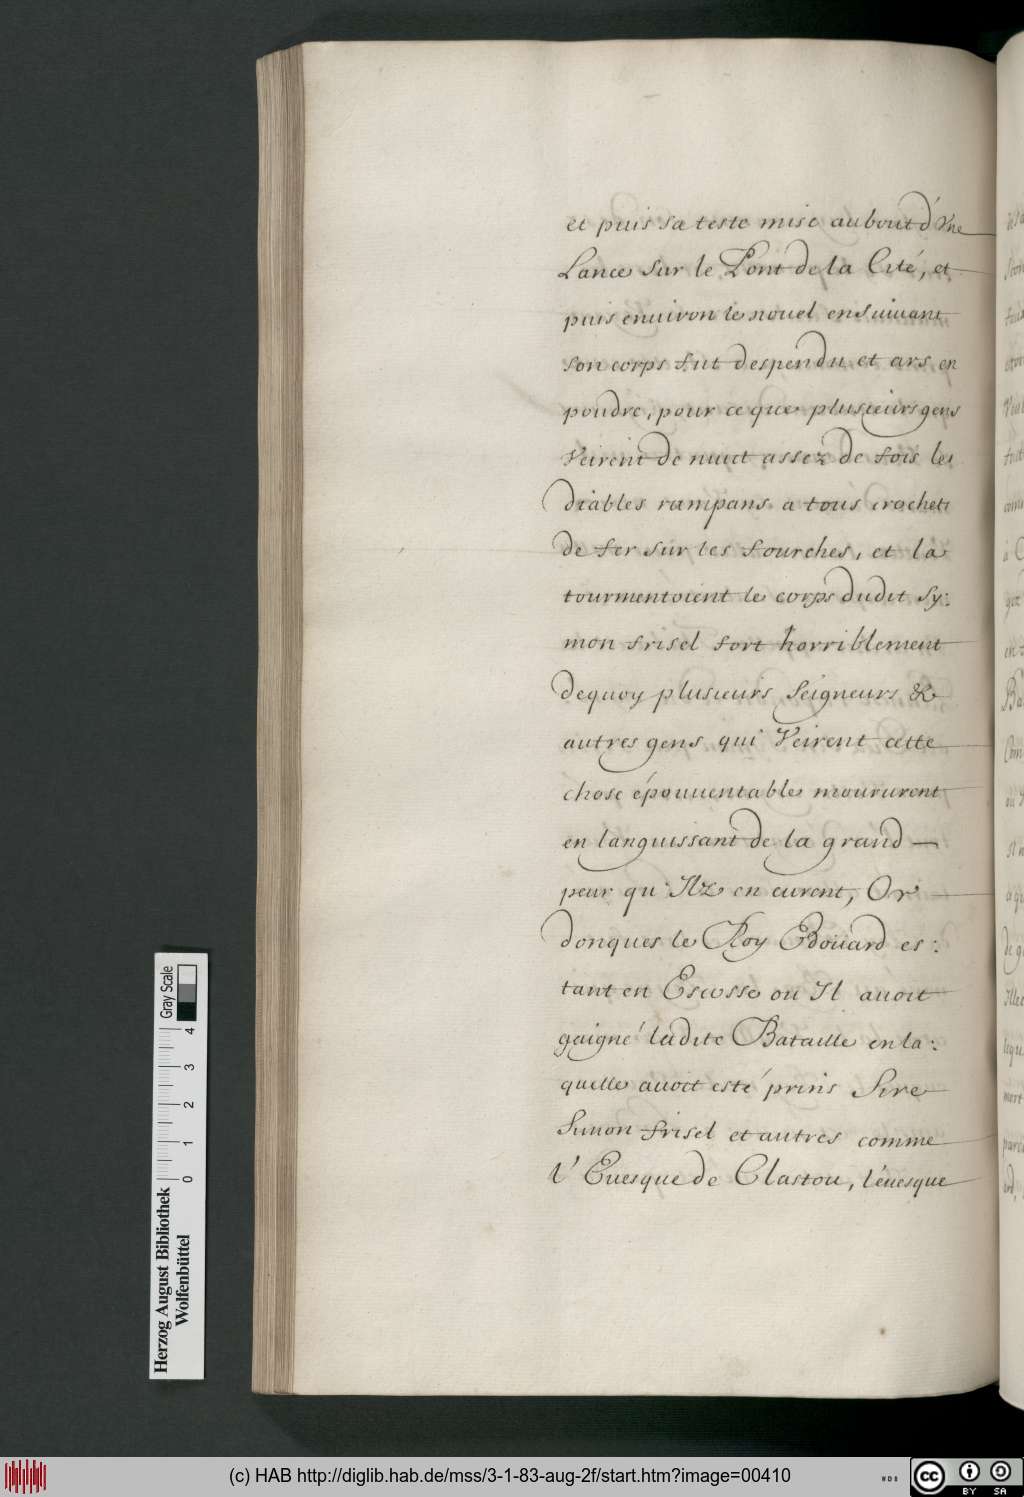 et puis sa teste mise au bout d'Vne
Lance sur le Pont de la Cité, et
puis enuiron le nouel ensuiuant
son corps fut despendu et ars en
poudre, pour ce que plusieurs gens
Veirent de nuict assez de fois les
diables rampans a tous crochets
de fer sur les fourches, et la
tourmentoient le corps dudit Sy:
mon frisel fort horriblement
dequoy plusieurs Seigneurs &
autres gens qui Veirent cette
chose épouuentable moururent
en languissant de la grand —
peur qu'Ilz en eurent, Or
donques le Roy Edoüard es:
tant en Escosse ou Il auoit
gaigné ladite Bataille en la:
quelle auoit esté prins Sire
Simon frisel et autres comme
l'Euesque de Glastou, l'éuesque
Gray Scale
0 1 2 3 4
Herzog August Bibliothek
Wolfenbüttel
(c) HAB http://diglib.hab.de/mss/3-1-83-aug-2f/start.htm?image=00410
WDB
cc
BY SA